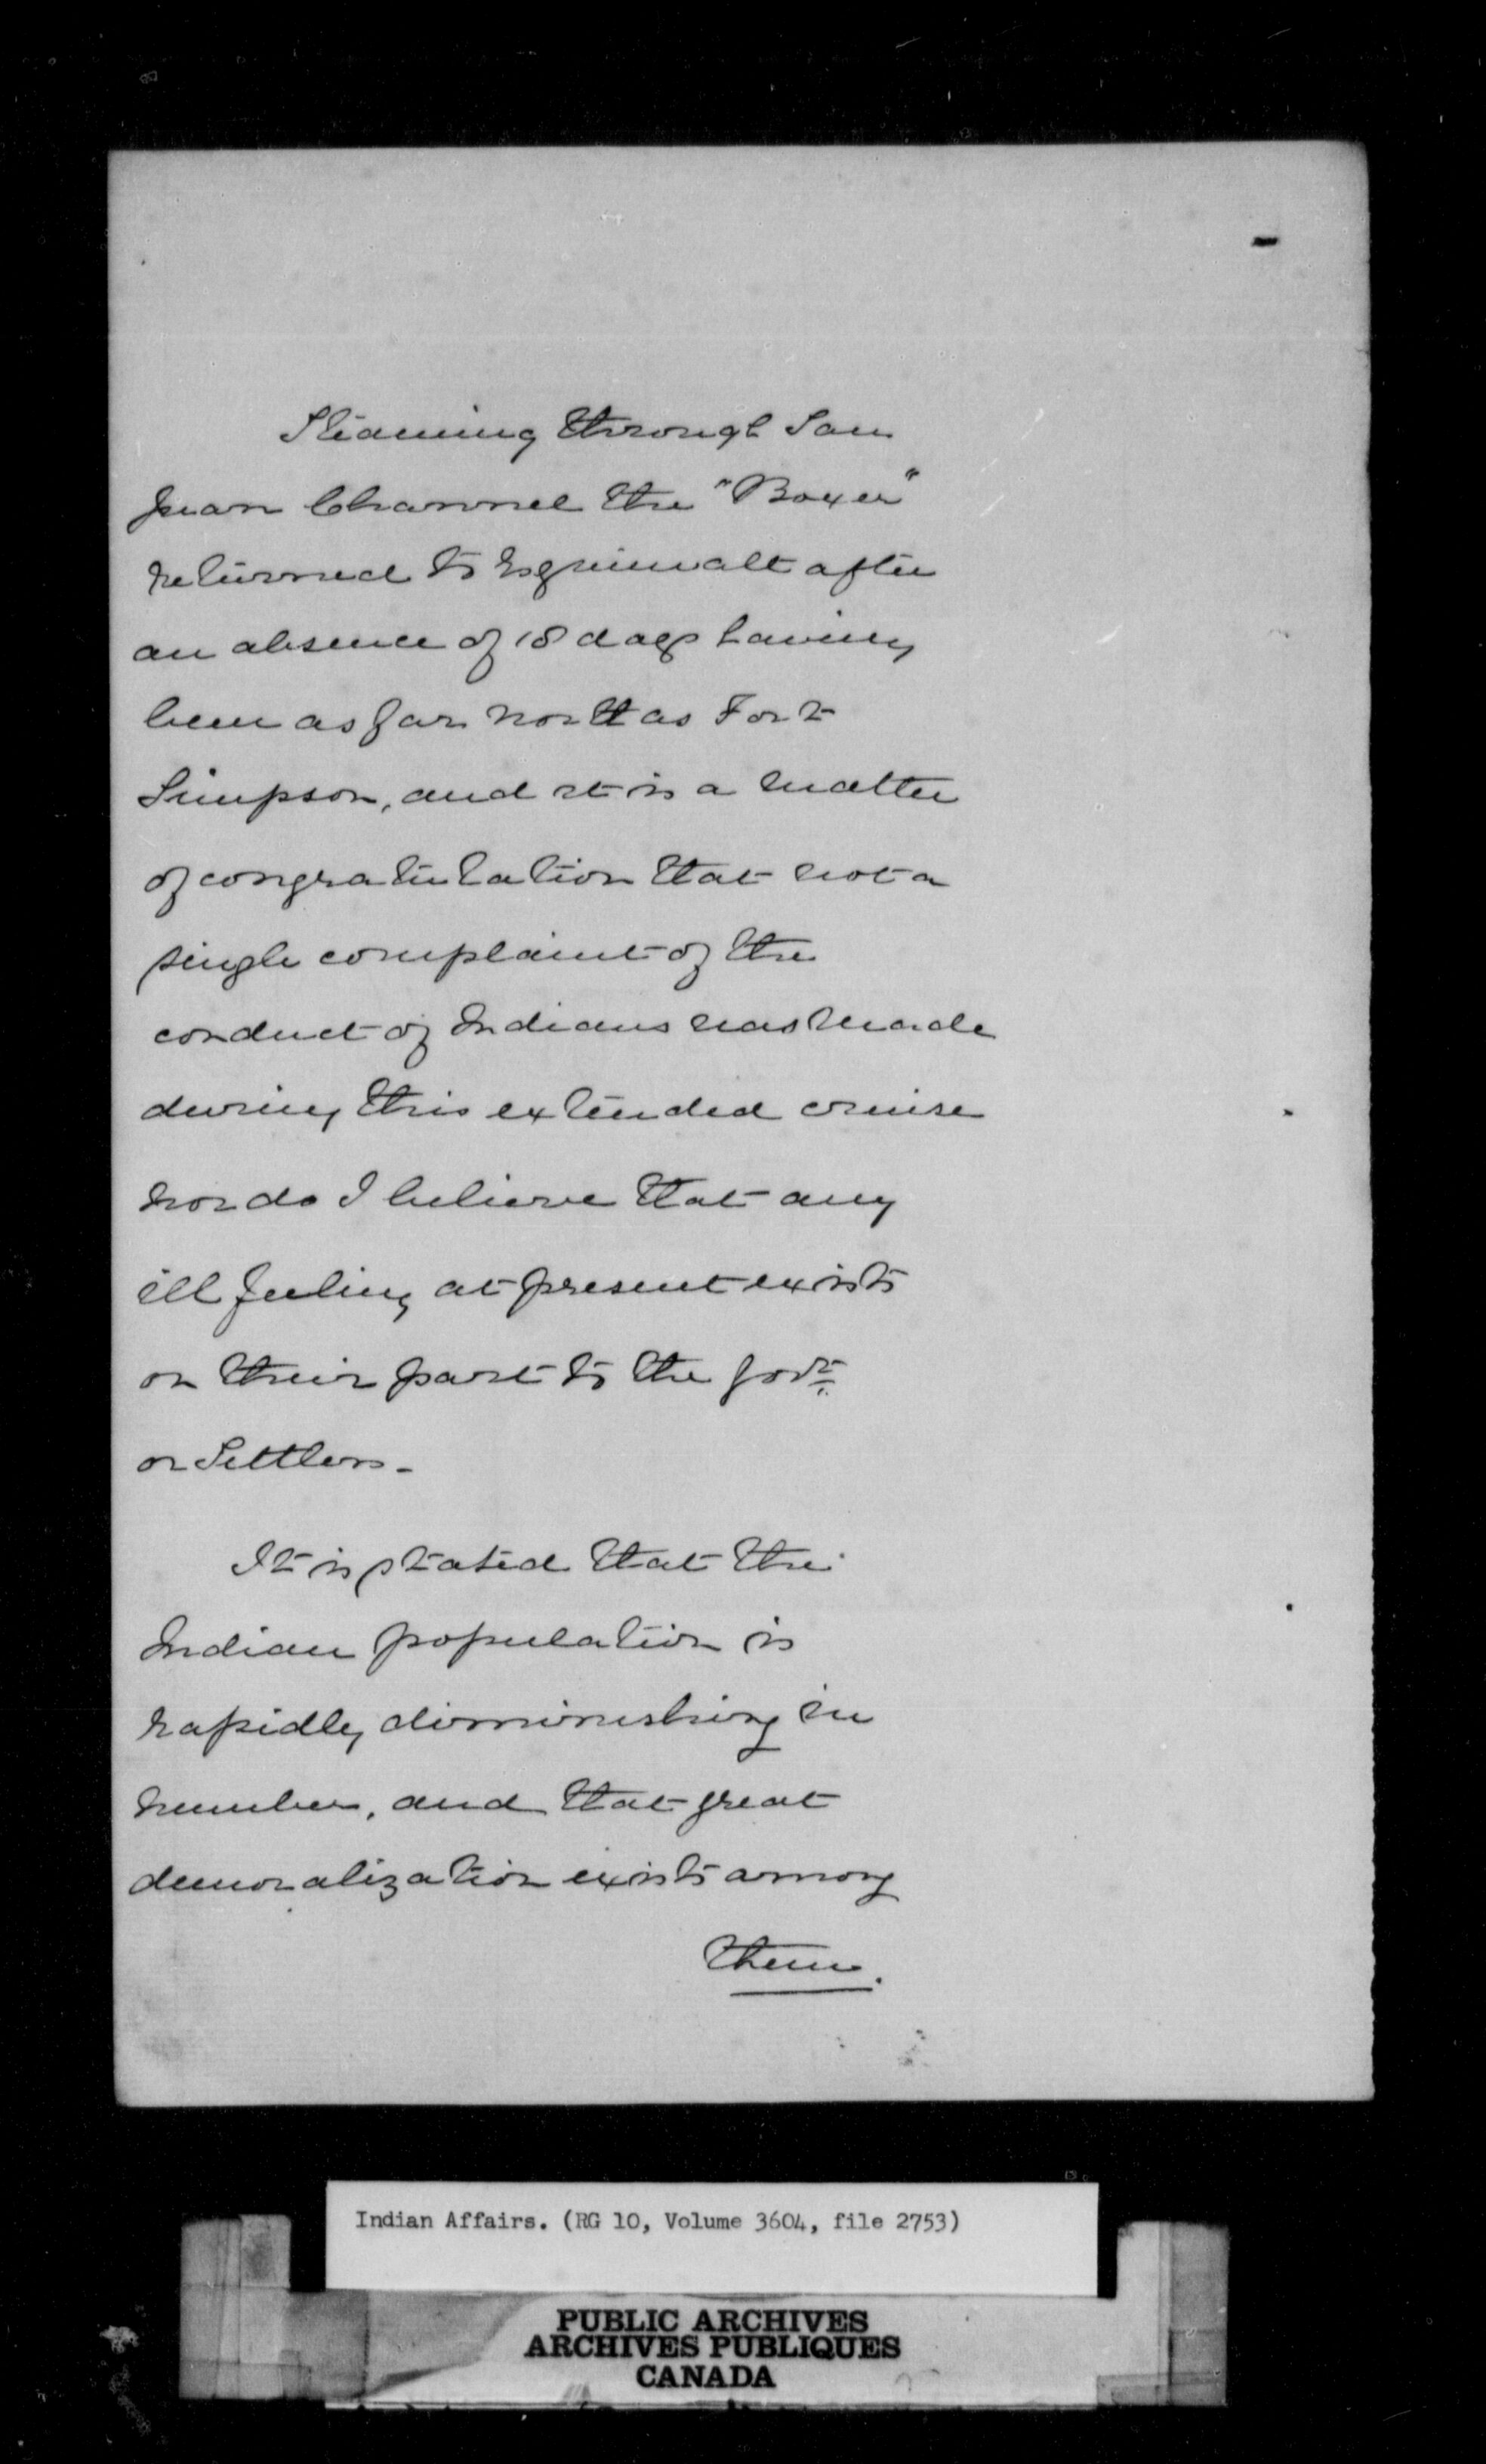 Steaming through San
Juan Channel the "Boxer"
returned to Esquimalt after
an absence of 18 days having
been as far north as Fort
Simpson, and it is a matter
of congratulation that not a
single complaint of the
conduct of Indians was made
during this extended cruise
nor do I believe that any
ill feeling at present exists
on their part to the Govt.
or Settlers -
It is stated that the
Indian population is
rapidly diminishing in
number, and that great
demoralization exists among
them.
Indian Affairs. (RG 10, Volume 3604, file 2753)
PUBLIC ARCHIVES
ARCHIVES PUBLIQUES
CANADA